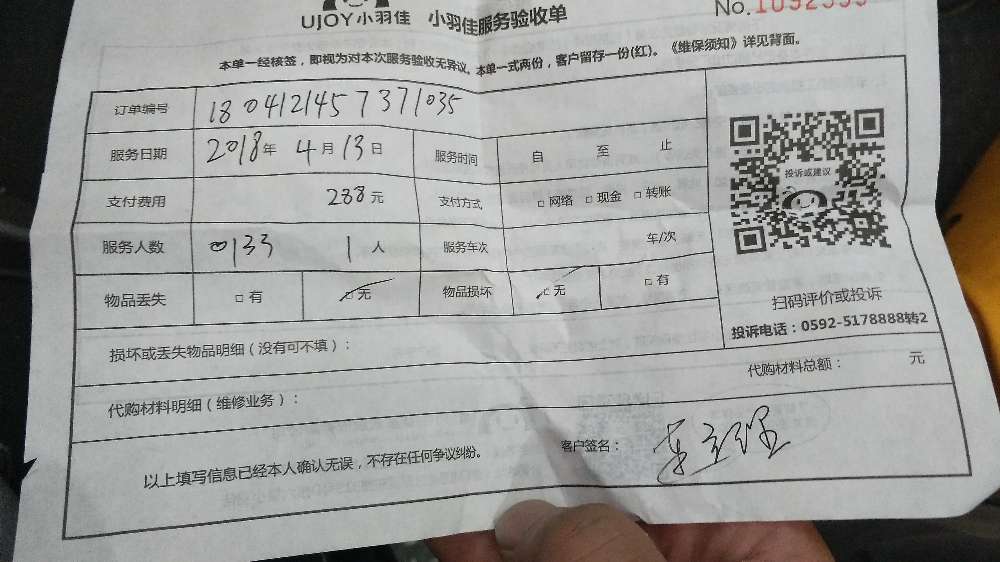 UJOY小羽佳 小羽佳服务验收单
No.
本单一经核签，即视为对本次服务验收无异议。本单一式两份，客户留存一份(红)。《维保须知》详见背面。
订单编号 1804121457371035
服务日期 2018年 4月13日 服务时间 自 至 止
支付费用 288元 支付方式 □ 网络 □ 现金 □ 转账
服务人数 0133 1人 服务车次 车/次
物品丢失 □ 有 □ 无 物品损坏 □ 无 □ 有
投诉或建议
扫码评价或投诉
投诉电话：0592-5178888转2
损坏或丢失物品明细（没有可不填）：
代购材料明细（维修业务）： 代购材料总额： 元
以上填写信息已经本人确认无误，不存在任何争议纠纷。 客户签名：